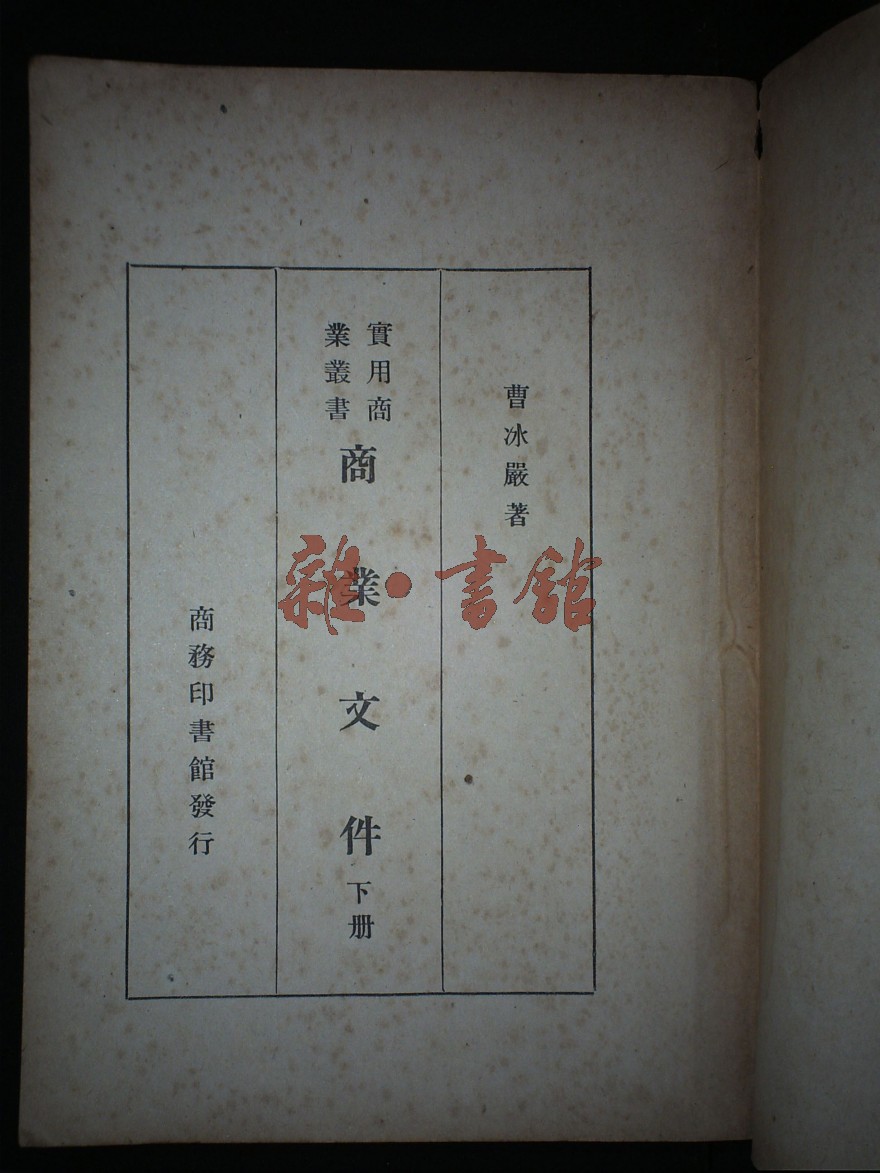 曹冰嚴著
實用商
業叢書
商業文件 下册
商務印書館發行
雜·書館